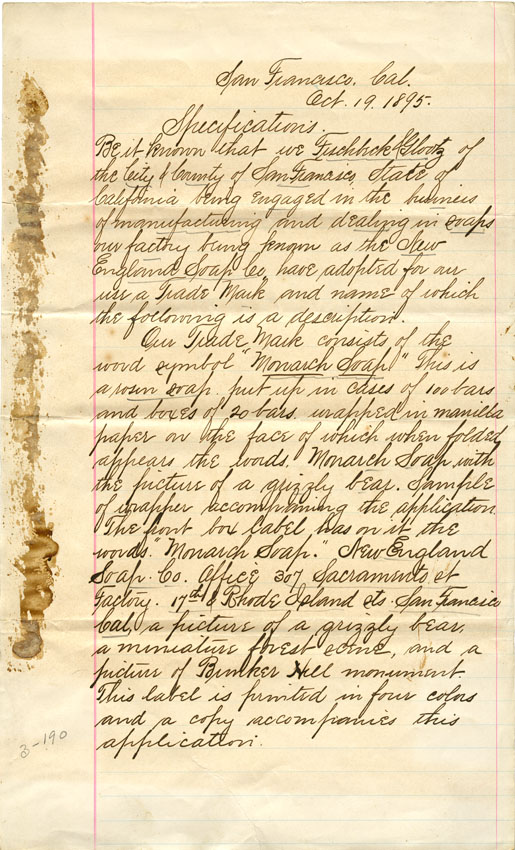 San Francisco, Cal.
Oct. 19, 1895.
Specifications.
Be it known that we Fischbeck & Glootz of
the City & County of San Francisco, State of
California being engaged in the business
of manufacturing and dealing in soaps
our factory being known as the New
England Soap Co, have adopted for our
use a Trade Mark and name of which
the following is a description.
Our Trade Mark consists of the
word symbol "Monarch Soap." This is
a rosin soap put up in cases of 100 bars
and boxes of 20 bars wrapped in manilla
paper on the face of which when folded
appears the words. "Monarch Soap" with
the picture of a grizzly bear. Sample
of wrapper accompanining the application
The front box label has on it the
words "Monarch Soap." New England
Soap Co. Office 307 Sacramento st
Factory. 17th & Rhode Island sts San Francisco
Cal, a picture of a grizzly bear,
a miniature forest scene, and a
picture of Bunker Hill monument
This label is printed in four colors
and a copy accompanies this
application.
3-190